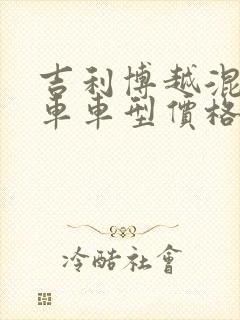 吉利博越混
車車型價格
冷酷社會